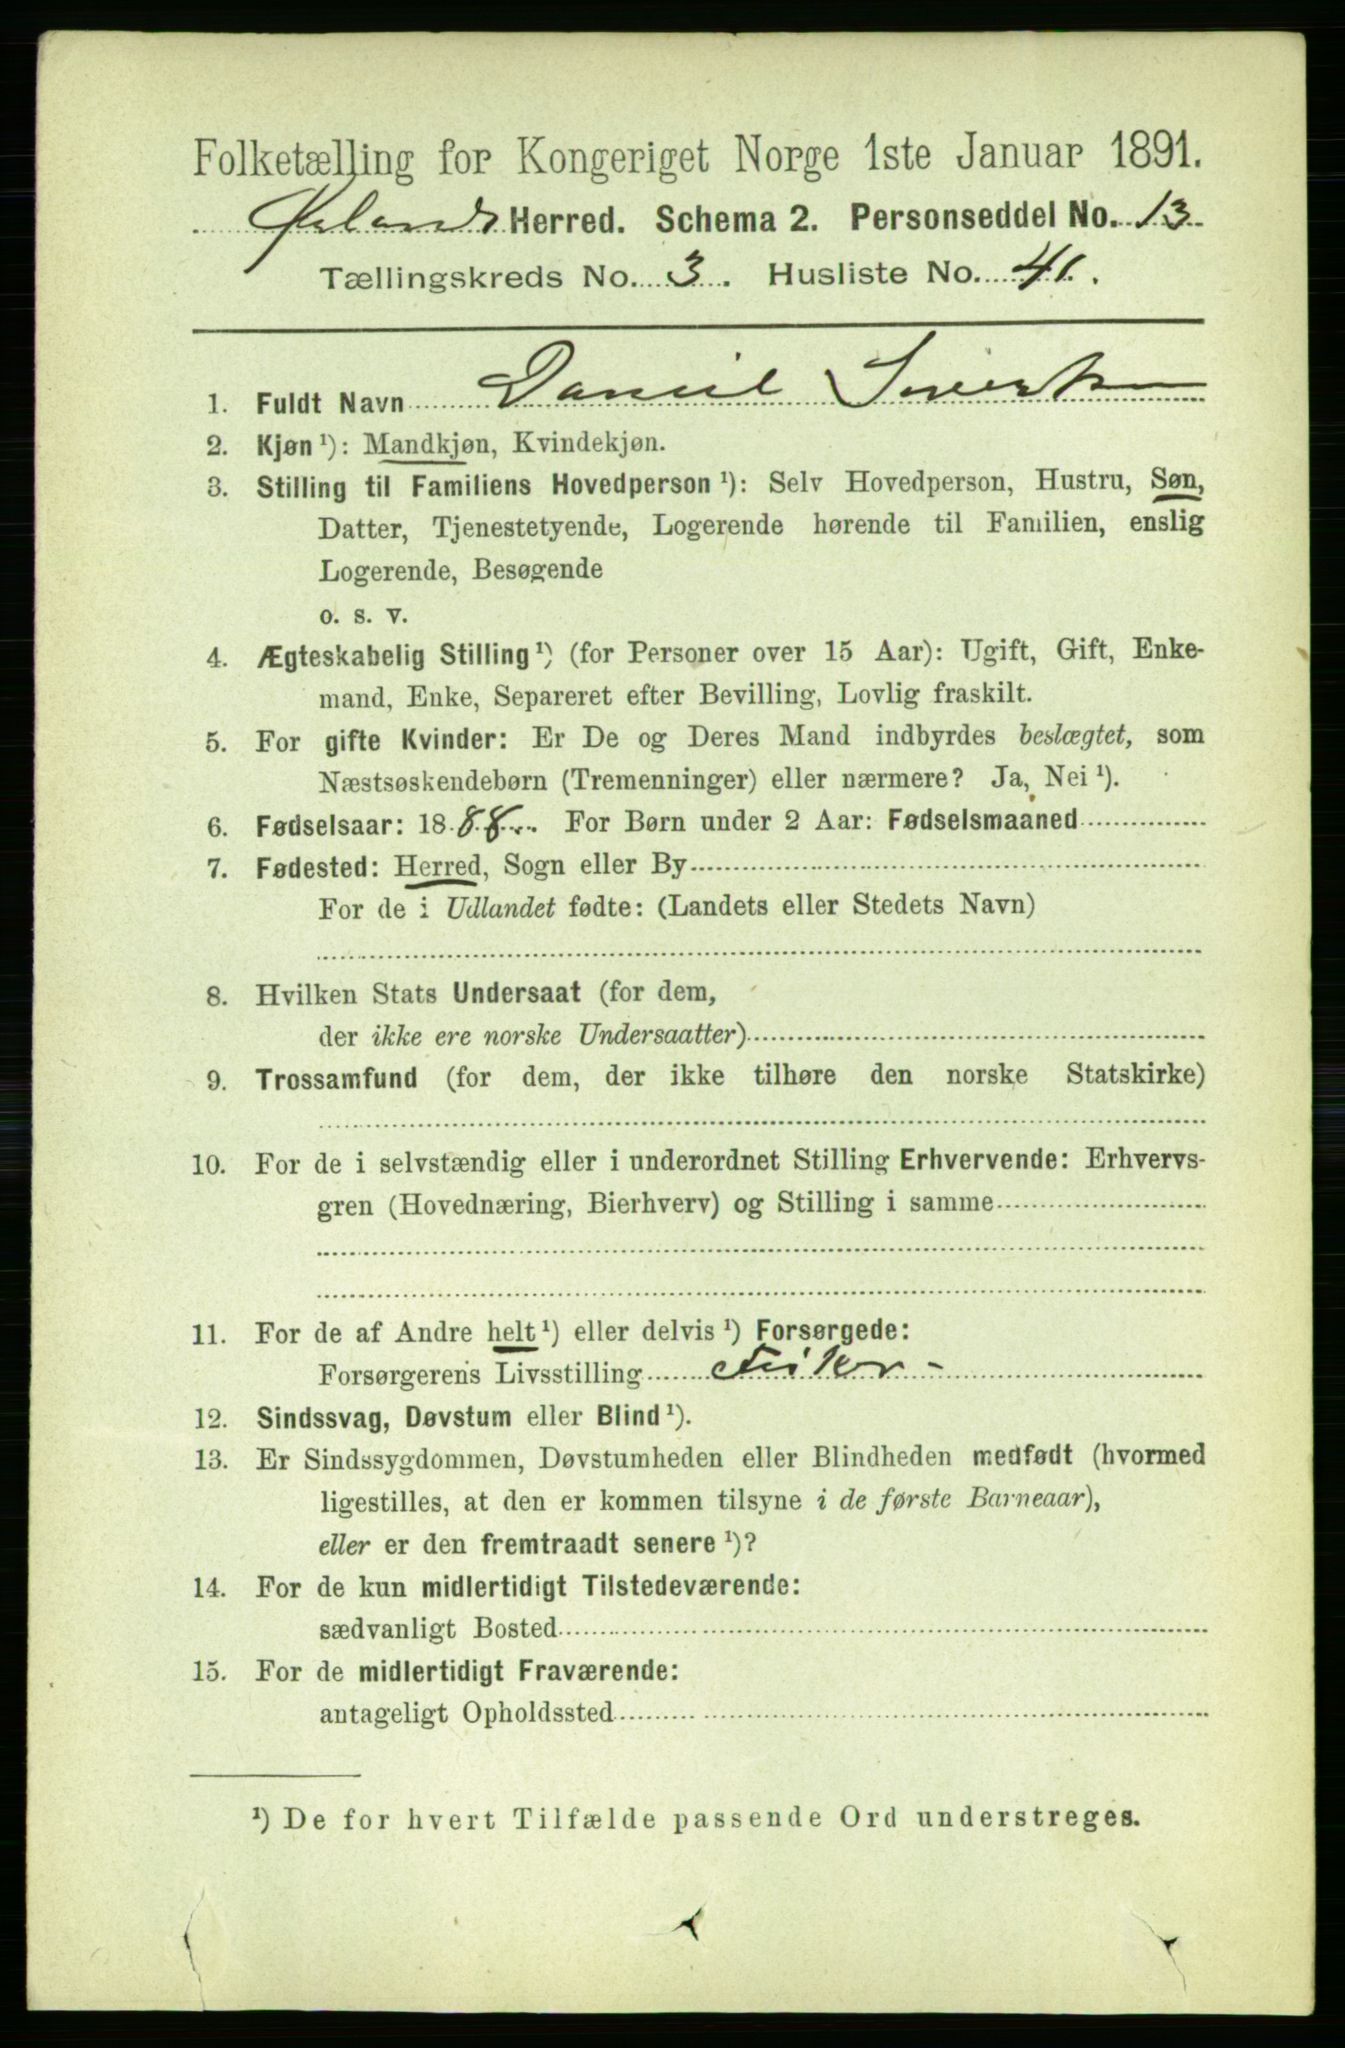 Folketælling for Kongeriget Norge 1ste Januar 1891.
Ørlands Herred. Schema 2. Personseddel No. 13
Tællingskreds No. 3. Husliste No. 41.
1. Fuldt Navn Daniel
2. Kjøn ¹): Mandkjøn, Kvindekjøn.
3. Stilling til Familiens Hovedperson ¹): Selv Hovedperson, Hustru, Søn,
Datter, Tjenestetyende, Logerende hørende til Familien, enslig
Logerende, Besøgende
o. s. v.
4. Ægteskabelig Stilling ¹) (for Personer over 15 Aar): Ugift, Gift, Enke-
mand, Enke, Separeret efter Bevilling, Lovlig fraskilt.
5. For gifte Kvinder: Er De og Deres Mand indbyrdes beslægtet, som
Næstsøskendebørn (Tremenninger) eller nærmere? Ja, Nei ¹).
6. Fødselsaar: 1888. For Børn under 2 Aar: Fødselsmaaned
7. Fødested: Herred, Sogn eller By
For de i Udlandet fødte: (Landets eller Stedets Navn)
8. Hvilken Stats Undersaat (for dem,
der ikke ere norske Undersaatter)
9. Trossamfund (for dem, der ikke tilhøre den norske Statskirke)
10. For de i selvstændig eller i underordnet Stilling Erhvervende: Erhvervs-
gren (Hovednæring, Bierhverv) og Stilling i samme
11. For de af Andre helt ¹) eller delvis ¹) Forsørgede:
Forsørgerens Livsstilling Fisker -
12. Sindssvag, Døvstum eller Blind ¹).
13. Er Sindssygdommen, Døvstumheden eller Blindheden medfødt (hvormed
ligestilles, at den er kommen tilsyne i de første Barneaar),
eller er den fremtraadt senere ¹)?
14. For de kun midlertidigt Tilstedeværende:
sædvanligt Bosted
15. For de midlertidigt Fraværende:
antageligt Opholdssted
¹) De for hvert Tilfælde passende Ord understreges.